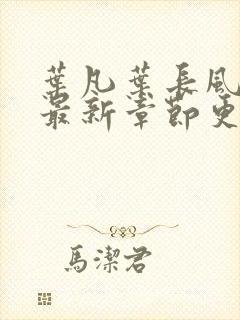 葉凡葉長風
最新章節更
馬潔君